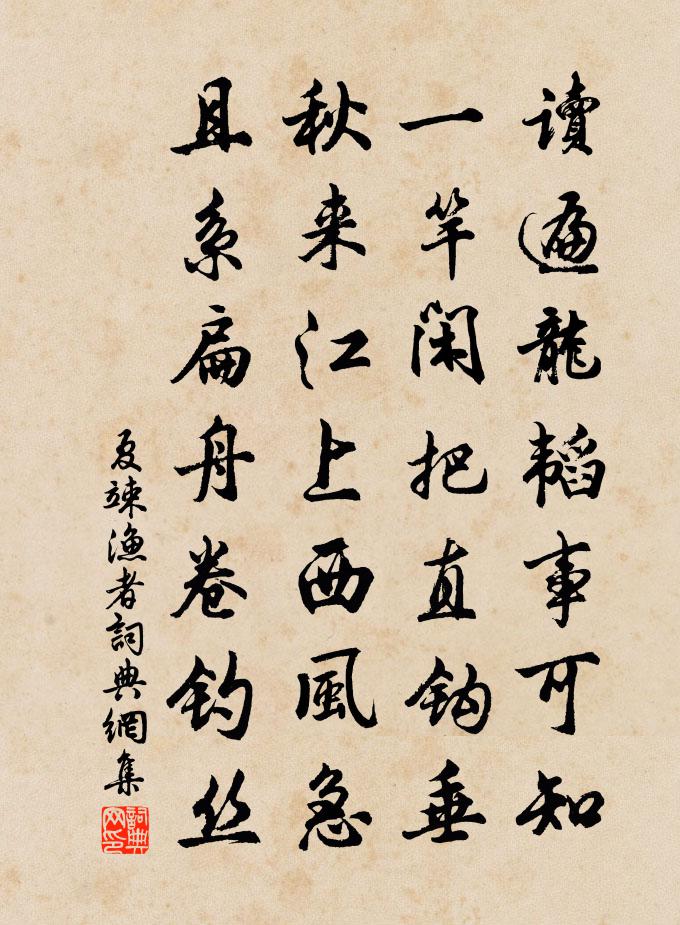 讀遍龍韜事可知
一竿閑把直鈎垂
秋来江上西風急
且系扁舟卷钓丝
夏竦漁者詞典網集
詞典网印